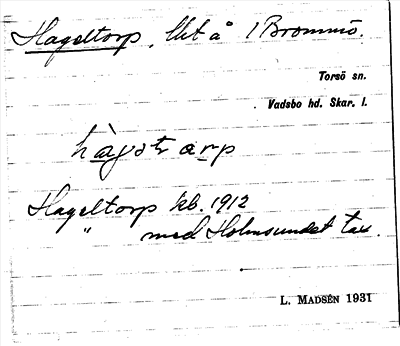 Hageltorp, llt å 1 Brommö.
Torsö sn.
Vadsbo hd. Skar. l.
Hageltorp kb. 1912
" med Holmsundet tax.
L. MADSÉN 1931